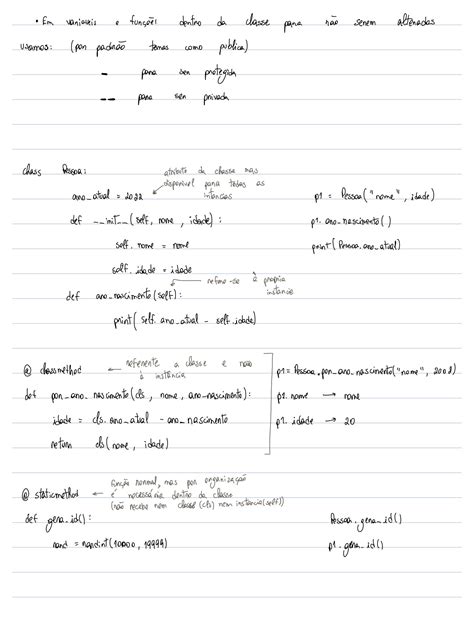 • Em variaveis e funções dentro da classe para não serem alteradas
usamos: (por padrão temos como publica)
_ para ser protegida
__ para ser privada
class Pessoa:
atributo da classe mas
disponível para todas as
instancias
ano_atual = 2022
p1 = Pessoa("nome", idade)
def __init__(self, nome, idade):
p1.ano_nascimento()
self.nome = nome
print(Pessoa.ano_atual)
self.idade = idade
refere-se à propria
instancia
def ano_nascimento(self):
print(self.ano_atual - self.idade)
@classmethod ← referente a classe e não
à instância
p1 = Pessoa.por_ano_nascimento("nome", 2002)
def por_ano_nascimento(cls, nome, ano_nascimento):
p1.nome → nome
idade = cls.ano_atual - ano_nascimento
p1.idade → 20
return cls(nome, idade)
@staticmethod ← função normal, mas por organização
é necessária dentro da classe
(não recebe nem classe (cls) nem instancia(self))
def gera_id():
Pessoa.gera_id()
rand = randint(10000, 19999)
p1.gera_id()